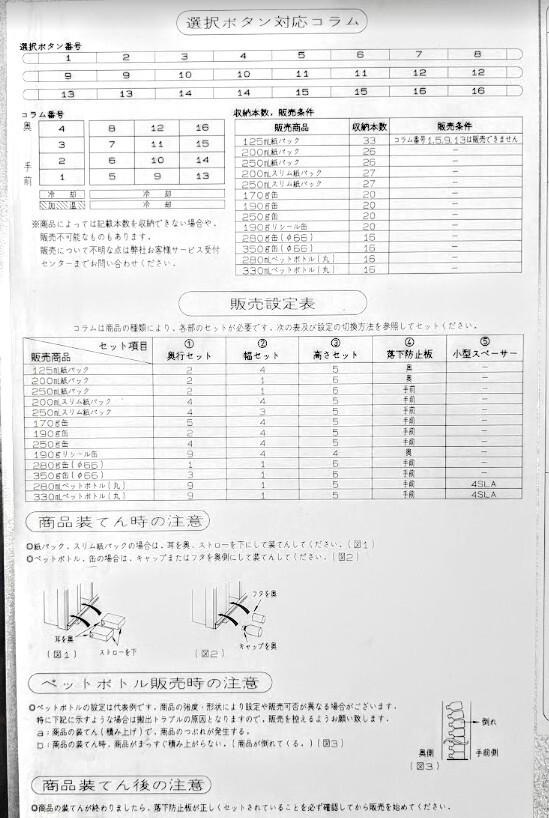 選択ボタン対応コラム
選択ボタン番号
1 2 3 4 5 6 7 8
9 9 10 10 11 11 12 12
13 13 14 14 15 15 16 16
コラム番号
奥
手前
4 8 12 16
3 7 11 15
2 6 10 14
1 5 9 13
冷却 冷却
加温 冷却
※商品によっては記載本数を収納できない場合や、
販売不可能なものもあります。
販売について不明な点は弊社お客様サービス受付
センターまでお問い合わせください。
収納本数，販売条件
販売商品 収納本数 販売条件
125mL紙パック 33 コラム番号1,5,9,13は販売できません
200mL紙パック 26 －
250mL紙パック 26 －
200mLスリム紙パック 27 －
250mLスリム紙パック 27 －
170g缶 20 －
190g缶 20 －
250g缶 20 －
190gリシール缶 20 －
280g缶(φ66) 16 －
350g缶(φ66) 16 －
280mLペットボトル(丸) 16 －
330mLペットボトル(丸) 16 －
販売設定表
コラムは商品の種類により、各部のセットが必要です。次の表及び設定の切換方法を参照してセットください。
セット項目 ① ② ③ ④ ⑤
販売商品 奥行セット 幅セット 高さセット 落下防止板 小型スペーサー
125mL紙パック 2 4 5 奥 －
200mL紙パック 2 1 6 奥 －
250mL紙パック 2 1 6 手前 －
200mLスリム紙パック 4 4 6 手前 －
250mLスリム紙パック 4 3 5 手前 －
170g缶 5 4 5 手前 －
190g缶 2 4 5 手前 －
250g缶 4 4 5 手前 －
190gリシール缶 9 4 4 奥 －
280g缶(φ66) 1 1 6 手前 －
350g缶(φ66) 3 1 5 手前 －
280mLペットボトル(丸) 9 1 5 手前 4SLA
330mLペットボトル(丸) 9 1 5 手前 4SLA
商品装てん時の注意
◎紙パック、スリム紙パックの場合は、耳を奥、ストローを下にして装てんしてください。(図1)
◎ペットボトル、缶の場合は、キャップまたはフタを奥側にして装てんしてください。(図2)
フタを奥
耳を奥 ストローを下 キャップを奥
(図1) (図2)
ペットボトル販売時の注意
◎ペットボトルの設定は代表例です。商品の強度・形状により設定や販売可否が異なる場合がございます。
特に下記に示すような場合は搬出トラブルの原因となりますので、販売を控えるようお願い致します。
a：商品の装てん(積み上げ)で、商品のつぶれが発生する。
b：商品の装てん時、商品がまっすぐ積み上がらない。(商品が倒れてくる。)(図3)
倒れ
奥側 手前側
(図3)
商品装てん後の注意
◎商品の装てんが終わりましたら、落下防止板が正しくセットされていることを必ず確認してから販売を始めてください。